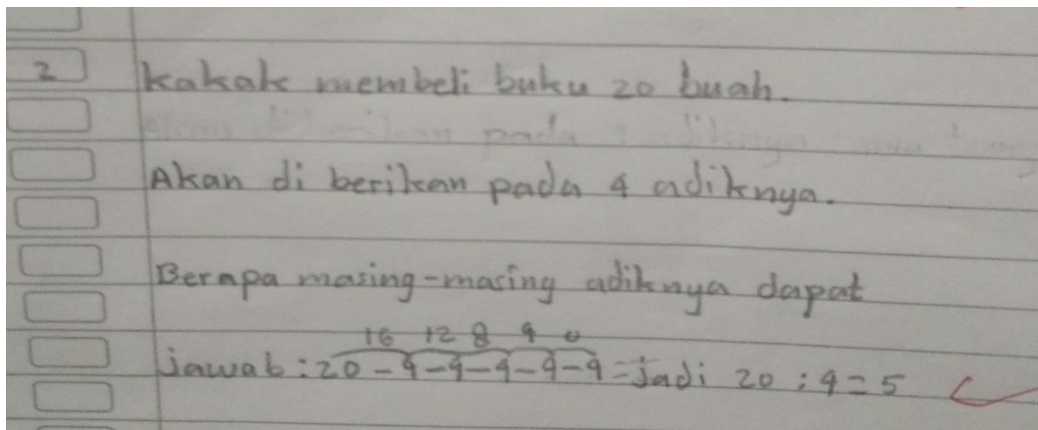 2 Kakak membeli buku 20 buah.
Akan di berikan pada 4 adiknya.
Berapa masing-masing adiknya dapat
16 12 8 4 0
Jawab : 20 - 4 - 4 - 4 - 4 - 4 = Jadi 20 : 4 = 5